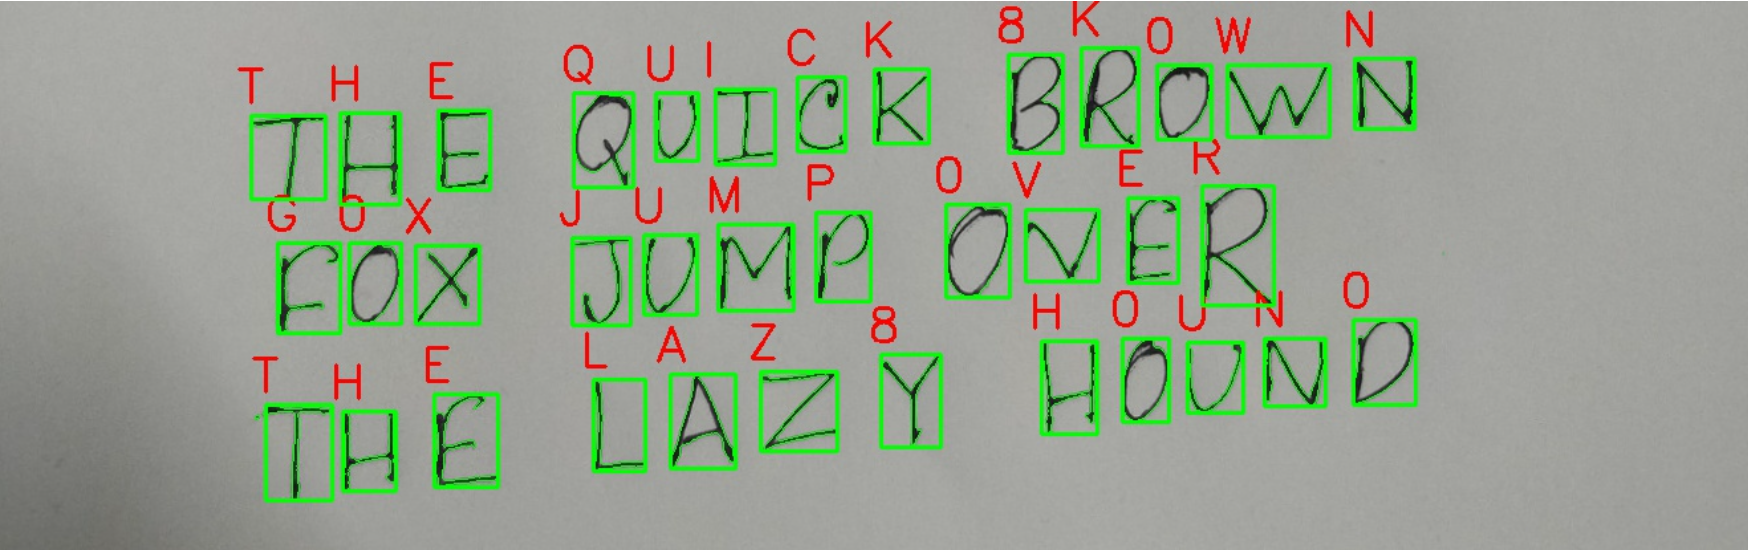 T H E Q U I C K 8 K O W N
THE QUICK BROWN
G O X J U M P O V E R
FOX JUMP OVER
T H E L A Z 8 H O U N O
THE LAZY HOUND